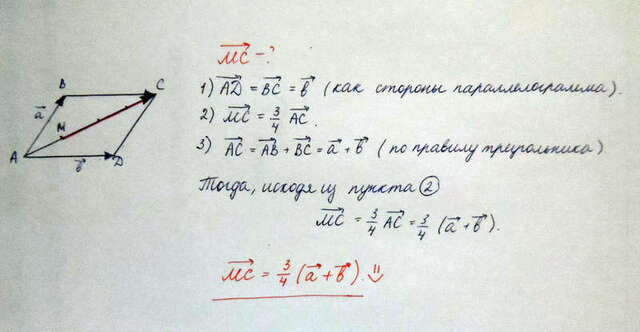 MC⃗ - ?
1) AD⃗ = BC⃗ = b⃗ (как стороны параллелограмма).
2) MC⃗ = 3/4 AC⃗.
3) AC⃗ = AB⃗ + BC⃗ = a⃗ + b⃗ (по правилу треугольника)
Тогда, исходя из пункта ②
MC⃗ = 3/4 AC⃗ = 3/4 (a⃗ + b⃗).
MC⃗ = 3/4 (a⃗ + b⃗).
B
C
a⃗
M
A
b⃗
D